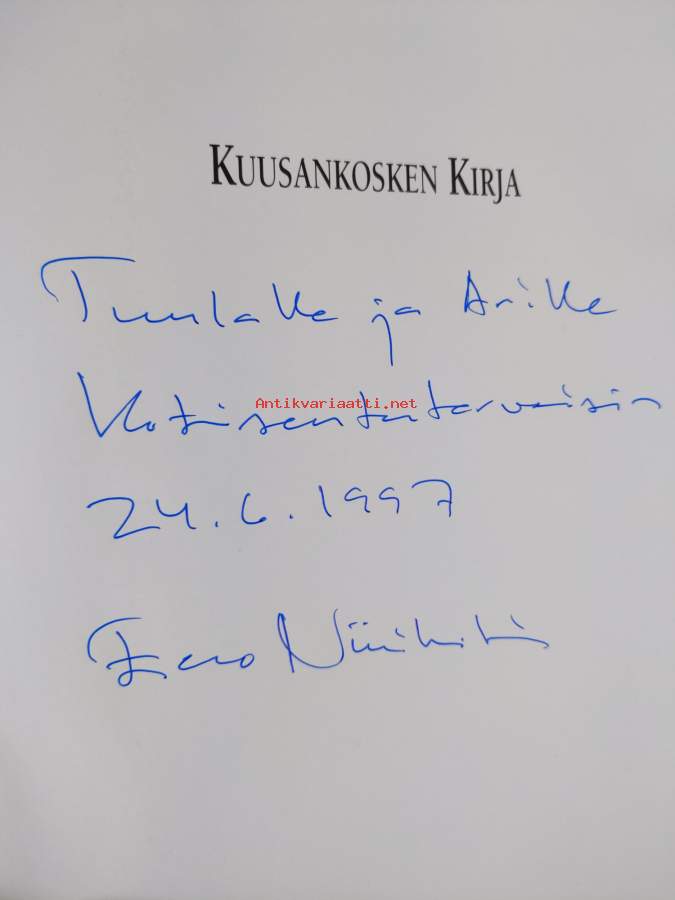 KUUSANKOSKEN KIRJA
Tuulalle ja Arille
Antikvariaatti.net
Kotiseututerveisin
24.6.1997
Eero Niinikoski